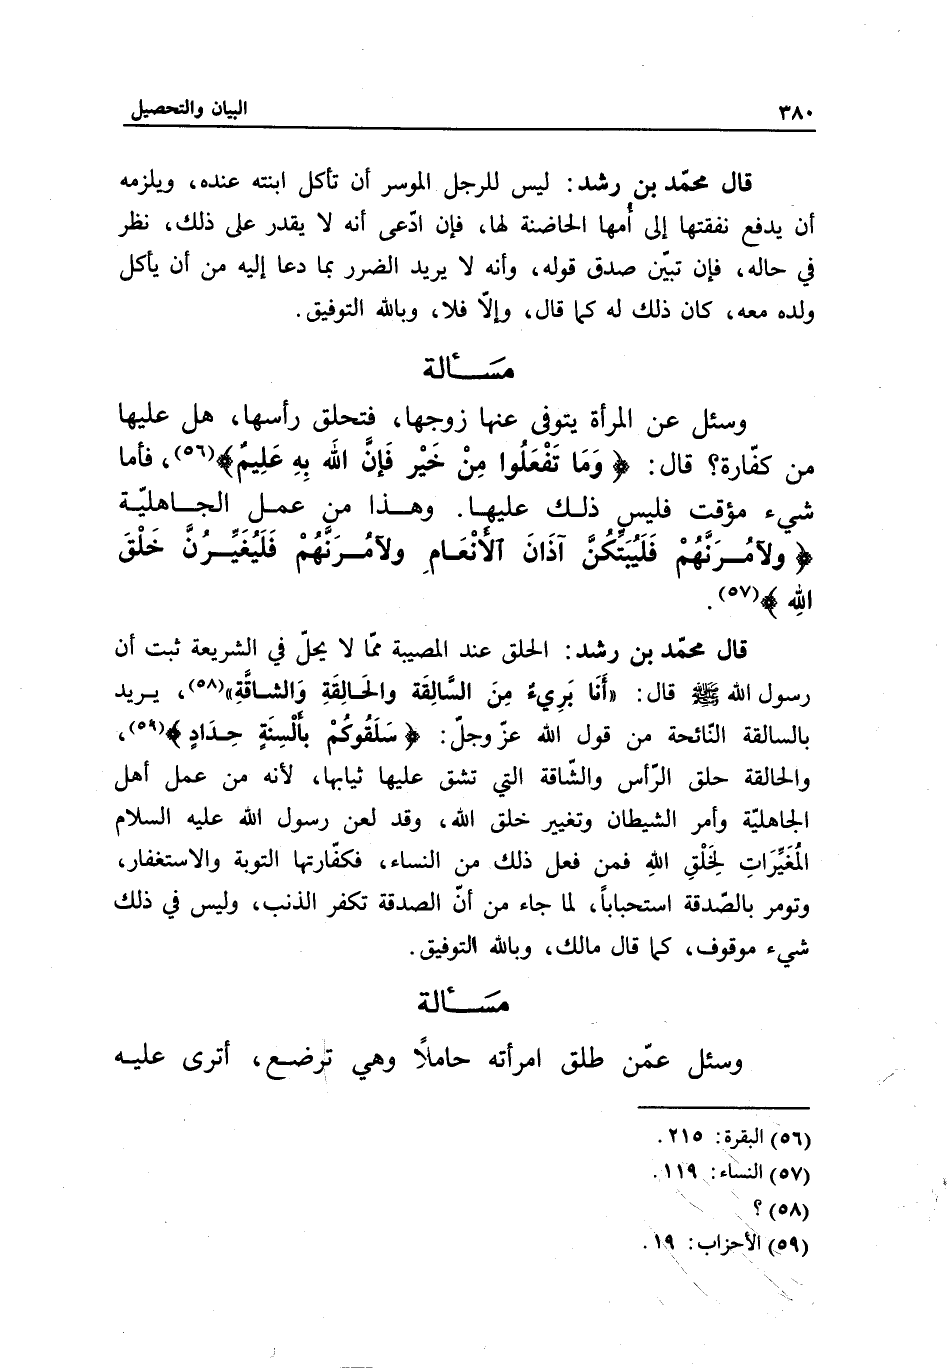 ٣٨٠ البيان والتحصيل
قال محمّد بن رشد: ليس للرجل الموسر أن تأكل ابنته عنده، ويلزمه
أن يدفع نفقتها إلى أُمها الحاضنة لها، فإن ادّعى أنه لا يقدر على ذلك، نظر
في حاله، فإن تبيّن صدق قوله، وأنه لا يريد الضرر بما دعا إليه من أن يأكل
ولده معه، كان ذلك له كما قال، وإلّا فلا، وبالله التوفيق.
مَسْأَلة
وسئل عن المرأة يتوفى عنها زوجها، فتحلق رأسها، هل عليها
من كفّارة؟ قال: ﴿وَمَا تَفْعَلُوا مِنْ خَيْر فَإِنَّ الله بِهِ عَلِيمٌ﴾(٥٦)، فأما
شيء مؤقت فليس ذلك عليها. وهذا من عمل الجاهليّة
﴿ولآمُرَنَّهُمْ فَلَيُبَتِّكُنَّ آذَانَ الأَنْعَامِ ولآمُرَنَّهُمْ فَلَيُغَيِّرُنَّ خَلْقَ
اللهِ﴾(٥٧).
قال محمّد بن رشد: الحلق عند المصيبة ممّا لا يحلّ في الشريعة ثبت أن
رسول الله ﷺ قال: «أَنَا بَرِيءٌ مِنَ السَّالِقَة والحَالِقَةِ وَالشاقَّةِ»(٥٨)، يريد
بالسالقة النّائحة من قول الله عزّ وجلّ: ﴿سَلَقُوكُمْ بأَلْسِنَةٍ حِدَادٍ﴾(٥٩)،
والحالقة حلق الرّأس والشّاقة التي تشق عليها ثيابها، لأنه من عمل أهل
الجاهليّة وأمر الشيطان وتغيير خلق الله، وقد لعن رسول الله عليه السلام
المُغَيِّرَاتِ لِخَلْقِ اللهِ فمن فعل ذلك من النساء، فكفّارتها التوبة والاستغفار،
وتومر بالصّدقة استحباباً، لما جاء من أنّ الصدقة تكفر الذنب، وليس في ذلك
شيء موقوف، كما قال مالك، وبالله التوفيق.
مَسْأَلة
وسئل عمّن طلق امرأته حاملاً وهي ترضع، أترى عليه
(٥٦) البقرة: ٢١٥.
(٥٧) النساء: ١١٩.
(٥٨) ؟
(٥٩) الأحزاب: ١٩.